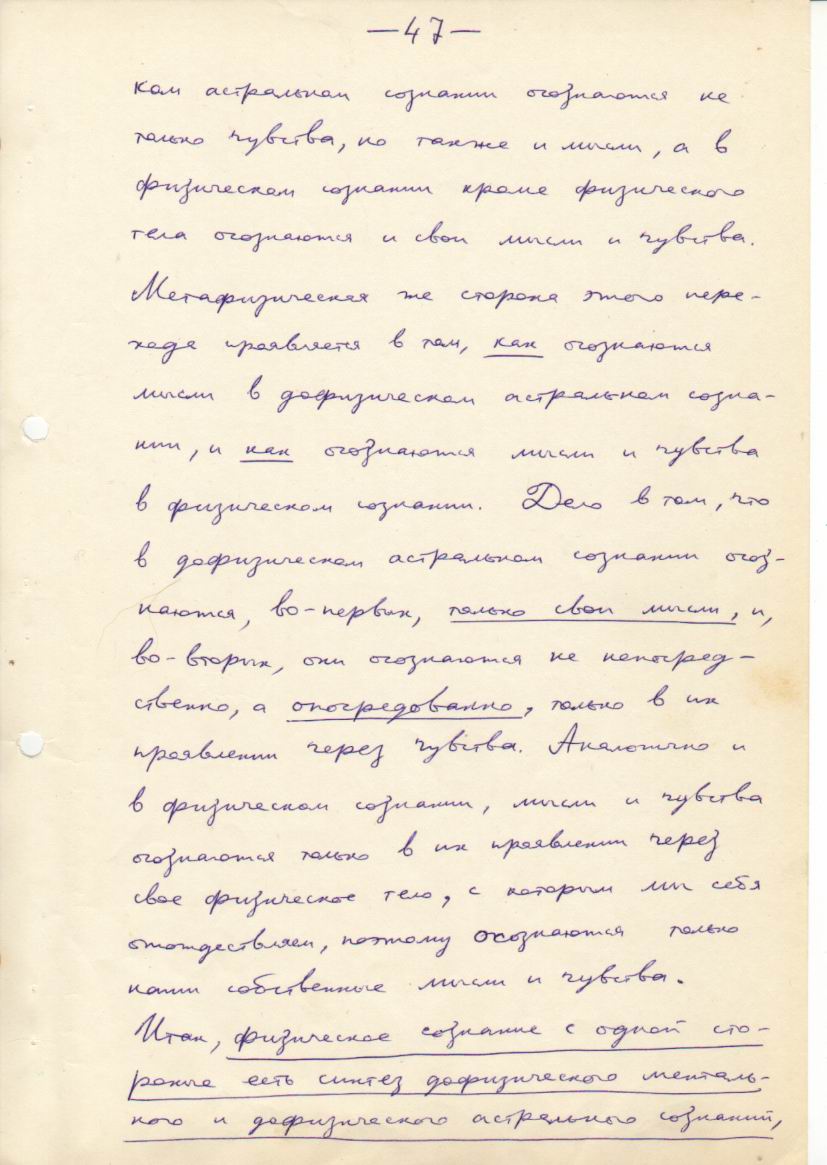 —47—
ком астральном сознании осознаются не
только чувства, но также и мысли, а в
физическом сознании кроме физического
тела осознаются и свои мысли и чувства.
Метафизическая же сторона этого пере-
хода проявляется в том, как осознаются
мысли в дофизическом астральном созна-
нии, и как осознаются мысли и чувства
в физическом сознании. Дело в том, что
в дофизическом астральном сознании осоз-
наются, во-первых, только свои мысли, и,
во-вторых, они осознаются не непосред-
ственно, а опосредованно, только в их
проявлении через чувства. Аналогично и
в физическом сознании, мысли и чувства
осознаются только в их проявлении через
свое физическое тело, с которым мы себя
отождествляем, поэтому осознаются только
наши собственные мысли и чувства.
Итак, физическое сознание с одной сто-
роны есть синтез дофизического менталь-
ного и дофизического астрального сознаний,